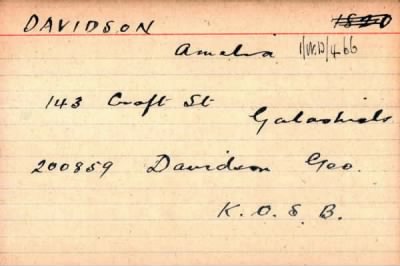 DAVIDSON 1820
Amelia 1/W.D/466
143 Croft St
Galashiels
200859 Davidson Geo.
K. O. S. B.